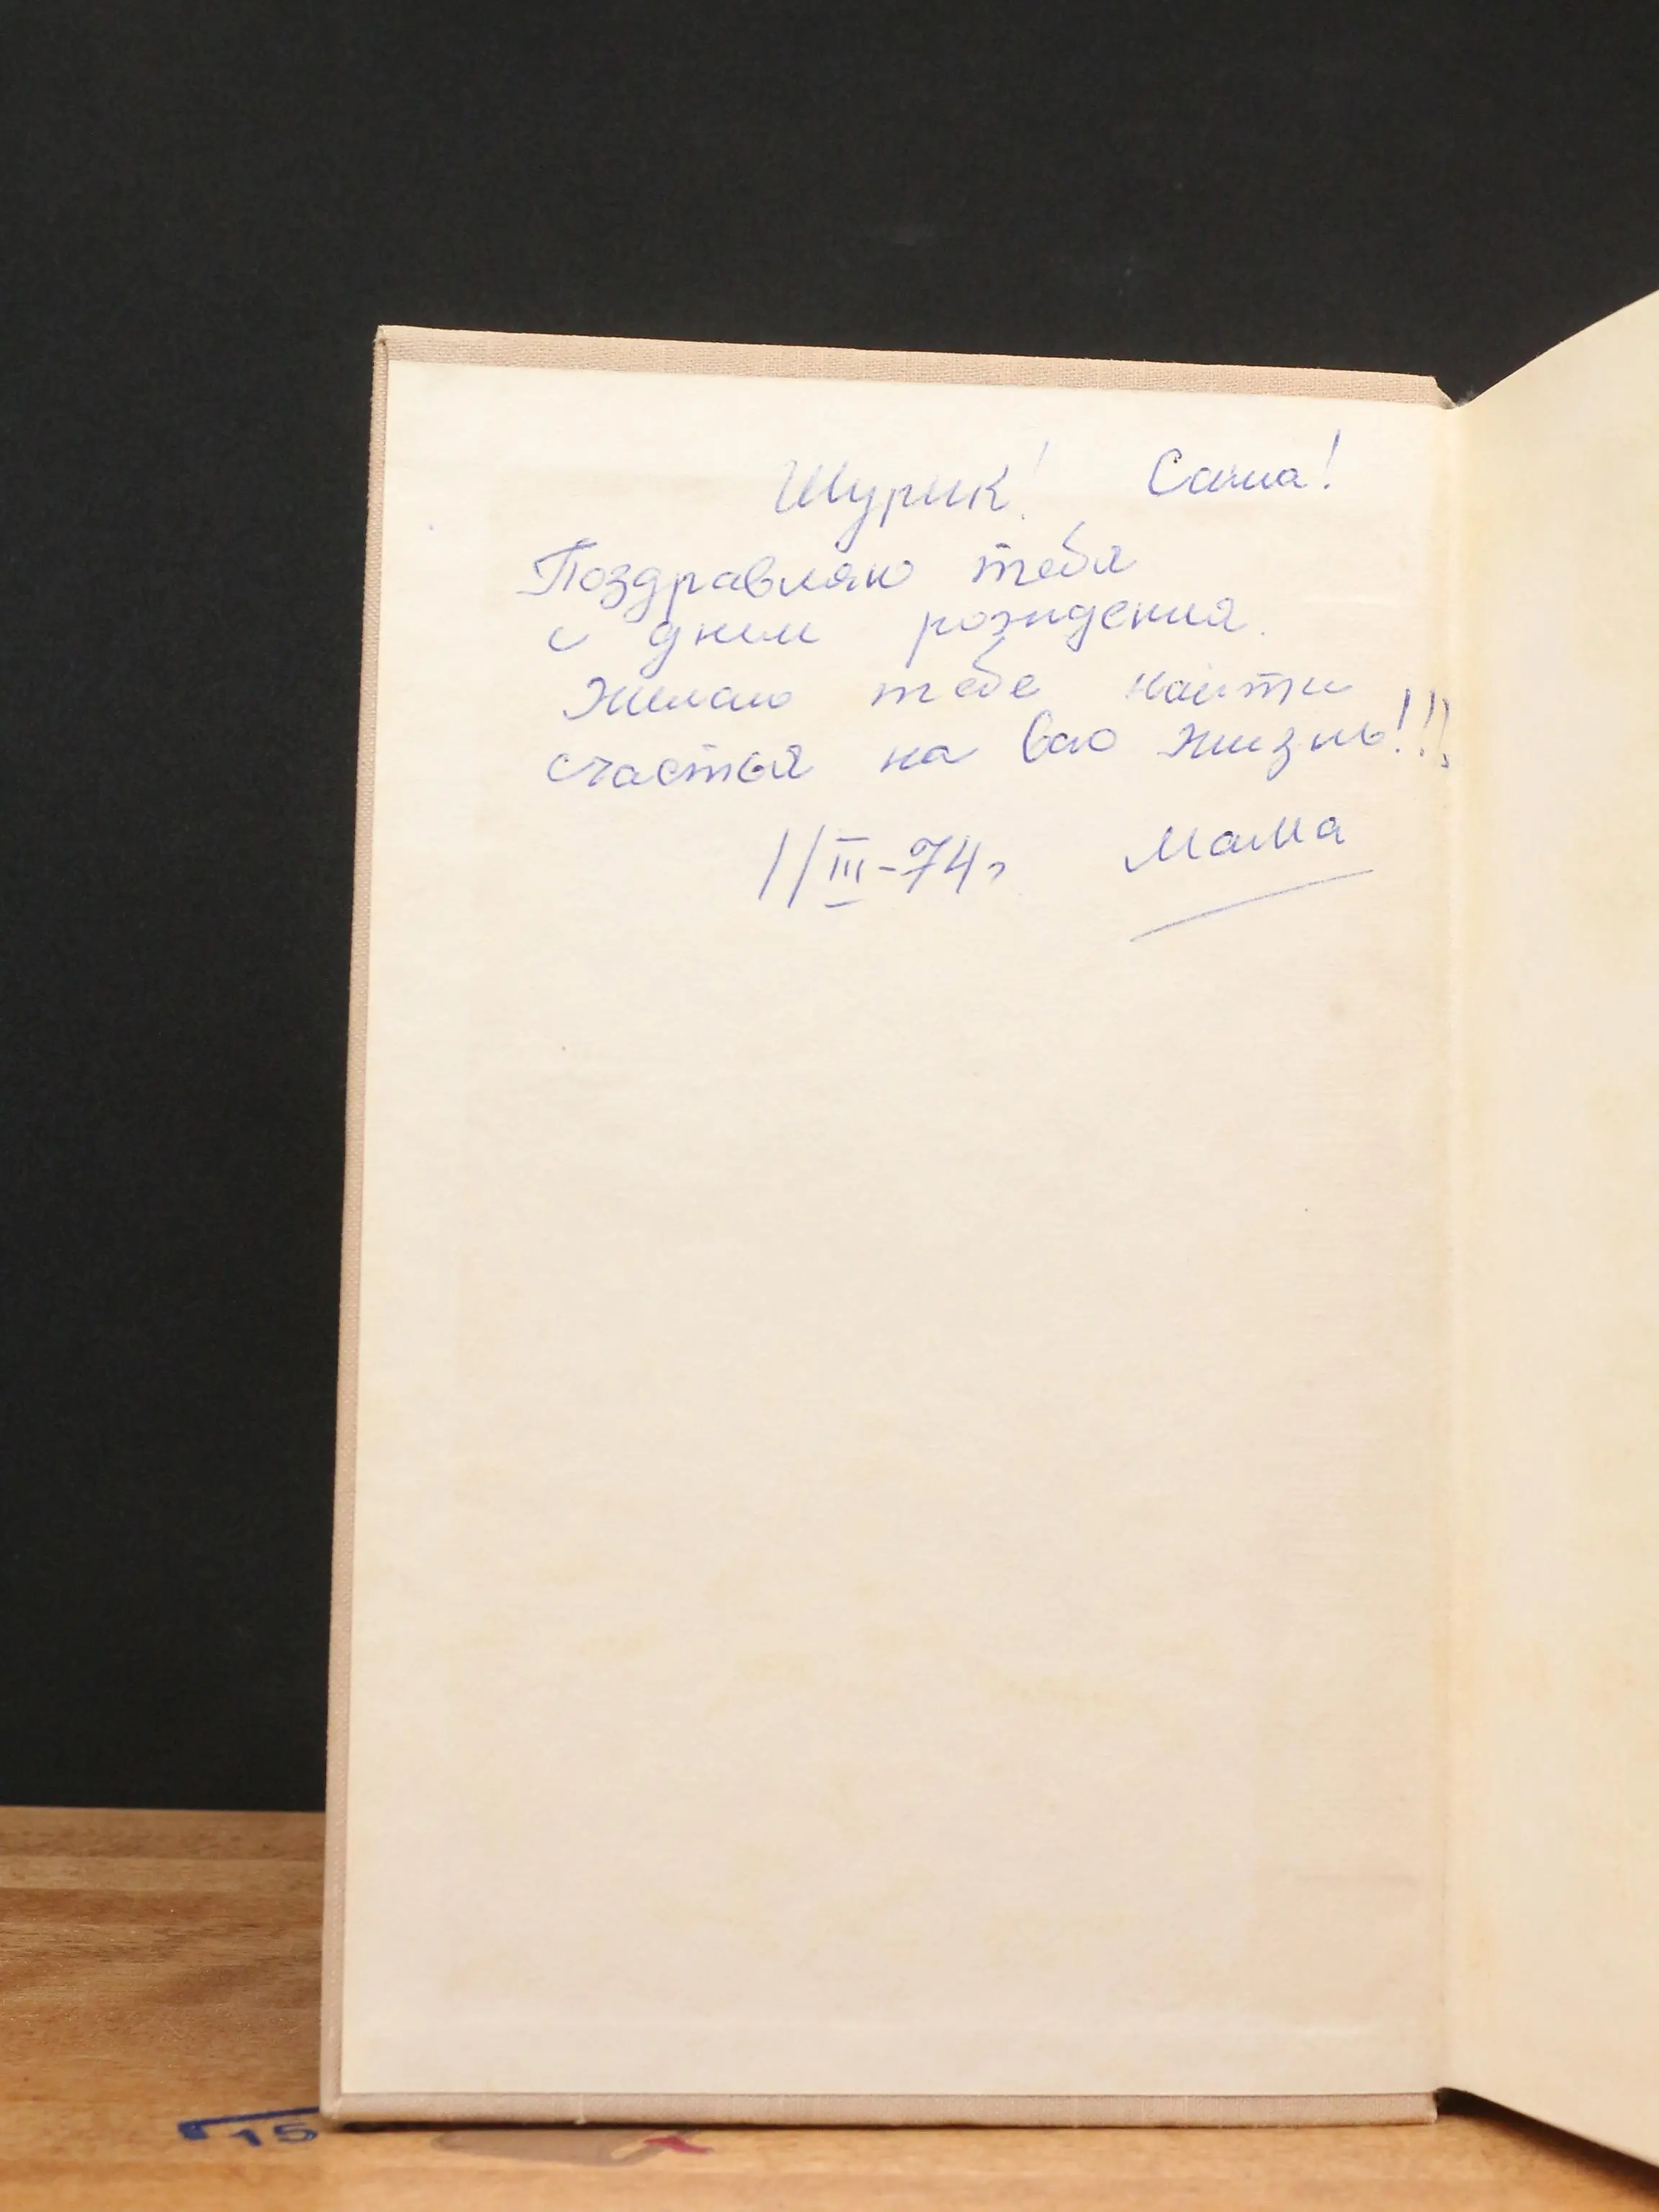 Шурик! Саша!
Поздравляю тебя
с днем рождения.
Желаю тебе найти
счастья на всю жизнь!!!
11 III-74г Мама
15